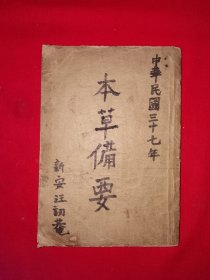 中華民國三十七年
本草備要
新安汪訒菴